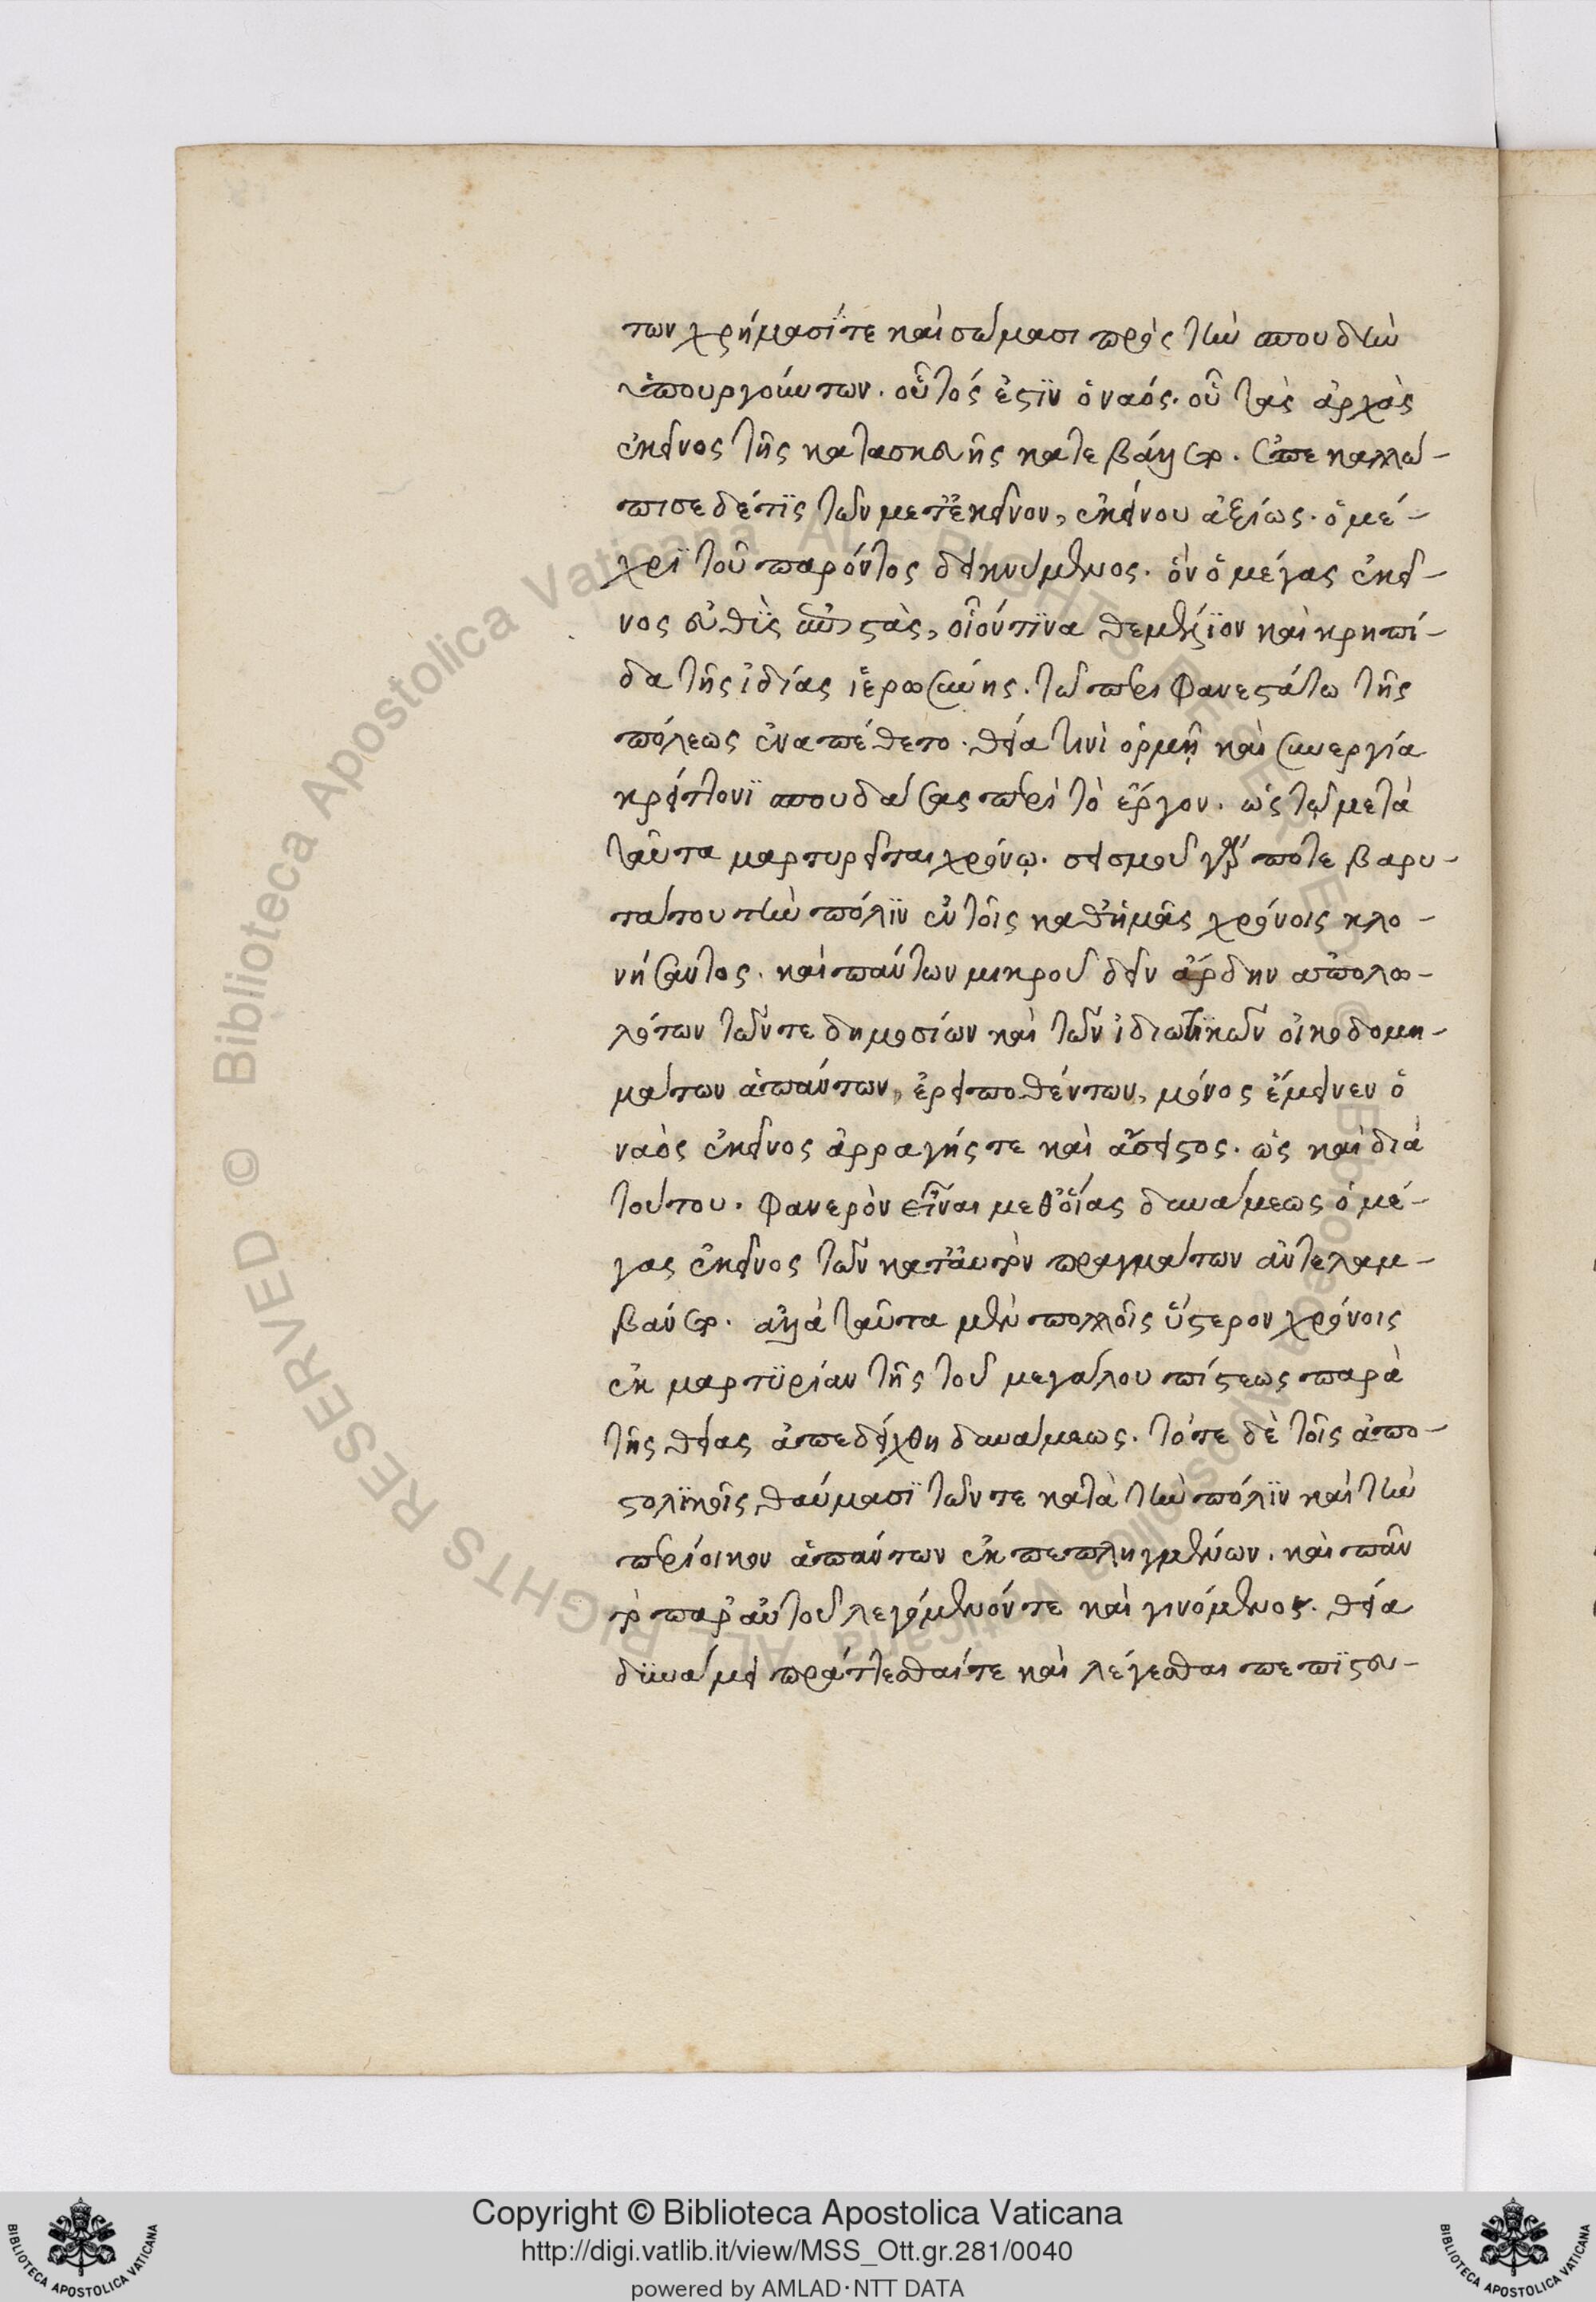 των χρήμασί τε καὶ σώμασι πρὸς τὴν σπουδὴν
ὑπουργούντων. οὗτός ἐστιν ὁ ναός. οὗ τὰς ἀρχὰς
ἐκεῖνος τῆς κατασκευῆς κατεβάλλετο. ἐπεκαλλώ-
πισε δέ τις τῶν μετ' ἐκεῖνον, ἐκείνου ἀξίως. ὁ μέ-
χρι τοῦ παρόντος δεικνύμενος. ὃν ὁ μέγας ἐκεῖ-
νος εὐθὺς ἐπιστὰς, οἷόν τινα θεμέλιον καὶ κρηπί-
δα τῆς ἰδίας ἱερωσύνης. τῷ περιφανεστάτῳ τῆς
πόλεως ἐναπέθετο. θείᾳ τινὶ ὁρμῇ καὶ συνεργίᾳ
κρείττονι σπουδάσας περὶ τὸ ἔργον. ὡς τῷ μετὰ
ταῦτα μαρτυρεῖται χρόνῳ. σεισμοῦ γάρ ποτε βαρυ-
τάτου τὴν πόλιν ἐν τοῖς καθ' ἡμᾶς χρόνοις κλο-
νήσαντος. καὶ πάντων μικροῦ δεῖν ἄρδην ἀπολω-
λότων τῶν τε δημοσίων καὶ τῶν ἰδιωτικῶν οἰκοδομη-
μάτων ἁπάντων, ἐρειπωθέντων, μόνος ἔμεινεν ὁ
ναὸς ἐκεῖνος ἀρραγής τε καὶ ἄσειστος. ὡς καὶ διὰ
τούτου. φανερὸν εἶναι μεθ' οἵας δυνάμεως ὁ μέ-
γας ἐκεῖνος τῶν κατ' αὐτὸν πραγμάτων ἀντελαμ-
βάνετο. ἀλλὰ ταῦτα μὲν πολλοῖς ὕστερον χρόνοις
ἐκ μαρτυρίαν τῆς τοῦ μεγάλου πίστεως παρὰ
τῆς θείας ἀπεδείχθη δυνάμεως. τότε δὲ τοῖς ἀπο-
στολικοῖς θαύμασι τῶν τε κατὰ τὴν πόλιν καὶ τὴν
περίοικον ἁπάντων ἐκπεπληγμένων. καὶ πᾶν
τὸ παρ' αὐτοῦ λεγόμενόν τε καὶ γινόμενος. θείᾳ
δυνάμει πράττεσθαί τε καὶ λέγεσθαι πεπιστευ-
Copyright © Biblioteca Apostolica Vaticana
http://digi.vatlib.it/view/MSS_Ott.gr.281/0040
powered by AMLAD·NTT DATA
© Biblioteca Apostolica Vaticana ALL RIGHTS RESERVED
BIBLIOTECA APOSTOLICA VATICANA
BIBLIOTECA APOSTOLICA VATICANA